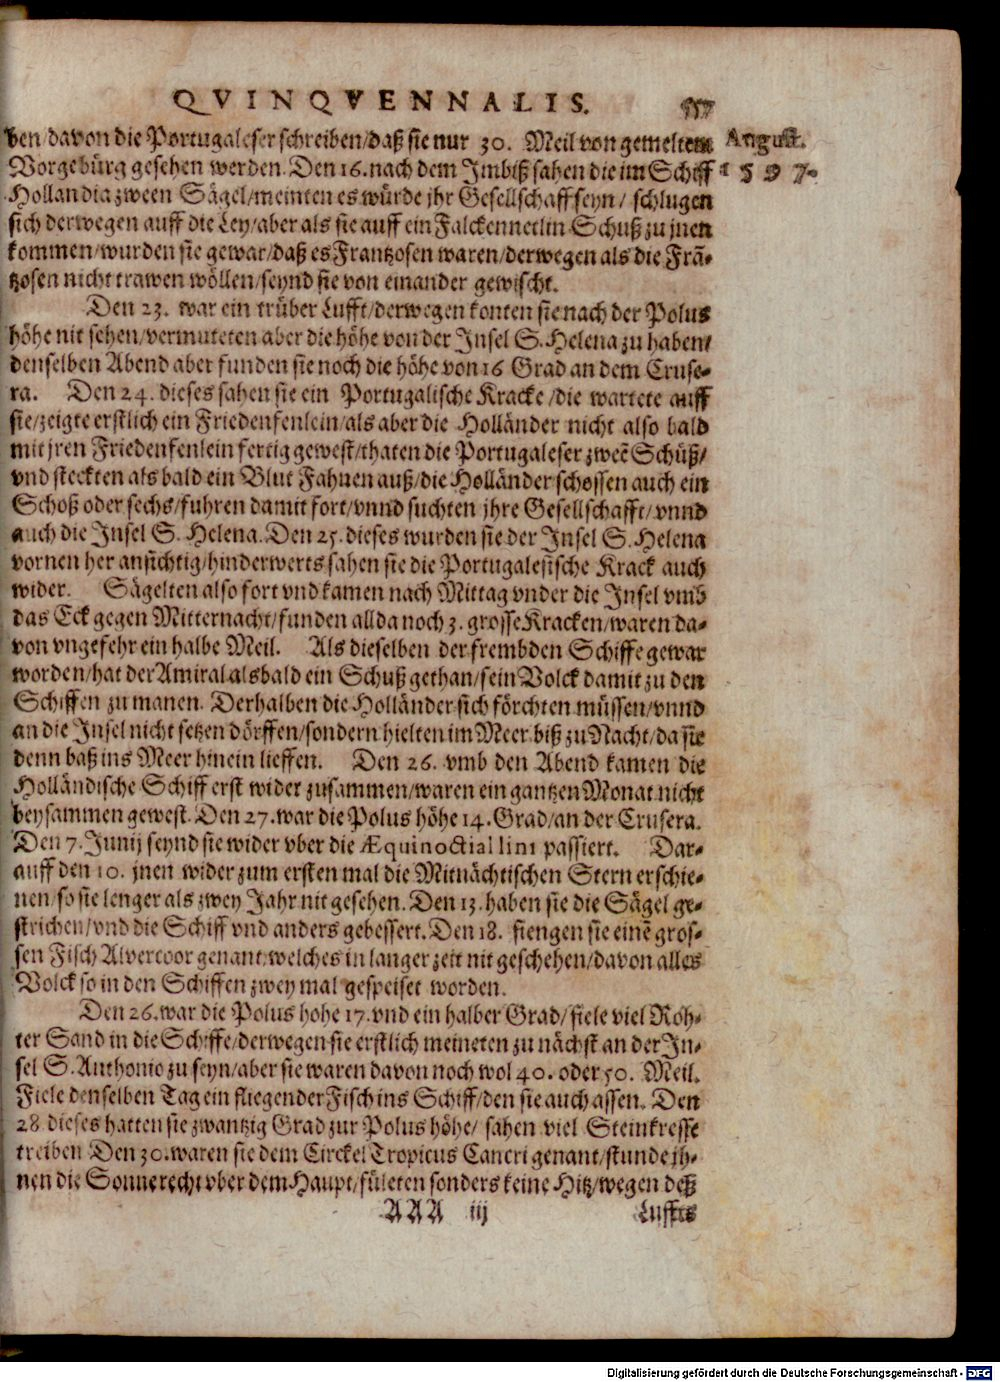 QVINQVENNALIS. 557
ben/davon die Portugaleser schreiben/daß sie nur 30. Meil von gemeltem
August.
Vorgebürg gesehen werden. Den 16. nach dem Imbiß sahen die im Schiff
1597.
Hollandia zween Sägel/meinten es würde jhr Gesellschafft seyn/ schlugen
sich derwegen auff die Ley/aber als sie auff ein Falckennetlin Schuß zu jnen
kommen/wurden sie gewar/daß es Frantzosen waren/derwegen als die Frã-
tzosen nicht trawen wöllen/seynd sie von einander gewischt.
Den 23. war ein trüber Lufft/derwegen konten sie nach der Polus
höhe nit sehen/vermuteten aber die höhe von der Insel S. Helena zu haben/
denselben Abend aber funden sie noch die höhe von 16 Grad an dem Cruse-
ra. Den 24. dieses sahen sie ein Portugalische Kracke/die wartete auff
sie/zeigte erstlich ein Friedenfenlein/als aber die Holländer nicht also bald
mit jren Friedenfenlein fertig gewest/thaten die Portugaleser zweẽ Schüß/
vnd steckten als bald ein Blut Fahnen auß/die Holländer schossen auch ein
Schoß oder sechs/fuhren damit fort/vnnd suchten jhre Gesellschafft/vnnd
auch die Insel S. Helena. Den 25. dieses wurden sie der Insel S. Helena
vornen her ansichtig/hinderwerts sahen sie die Portugalesische Krack auch
wider. Sägelten also fort vnd kamen nach Mittag vnder die Insel vmb
das Eck gegen Mitternacht/funden allda noch 3. grosse Kracken/waren da-
von vngefehr ein halbe Meil. Als dieselben der frembden Schiffe gewar
worden/hat der Amiral alsbald ein Schuß gethan/sein Volck damit zu den
Schiffen zu manen. Derhalben die Holländer sich förchten müssen/vnnd
an die Insel nicht setzen dörffen/sondern hielten im Meer biß zu Nacht/da sie
denn baß ins Meer hinein lieffen. Den 26. vmb den Abend kamen die
Holländische Schiff erst wider zusammen/waren ein gantzen Monat nicht
beysammen gewest. Den 27. war die Polus höhe 14. Grad/an der Crusera.
Den 7. Junij seynd sie wider vber die Æquinoctial lini passiert. Dar-
auff den 10. jnen wider zum ersten mal die Mitnächtischen Stern erschie-
nen/so sie lenger als zwey Jahr nit gesehen. Den 13. haben sie die Sägel ge-
strichen/vnd die Schiff vnd anders gebessert. Den 18. fiengen sie einẽ gros-
sen Fisch Alvercoor genant welches in langer zeit nit geschehen/davon alles
Volck so in den Schiffen zwey mal gespeiset worden.
Den 26. war die Polus hohe 17. vnd ein halber Grad/fiele viel Roh-
ter Sand in die Schiffe/derwegen sie erstlich meineten zu nächst an der In-
sel S. Anthonio zu seyn/aber sie waren davon noch wol 40. oder 50. Meil.
Fiele denselben Tag ein fliegender Fisch ins Schiff/den sie auch assen. Den
28 dieses hatten sie zwantzig Grad zur Polus höhe/ sahen viel Steinkresse
treiben Den 30. waren sie dem Circkel Tropicus Cancri genant/stunde jh-
nen die Sonne recht vber dem Haupt/fületen sonders keine Hitz/wegen deß
AAA iij Luffts
Digitalisierung gefördert durch die Deutsche Forschungsgemeinschaft - DFG